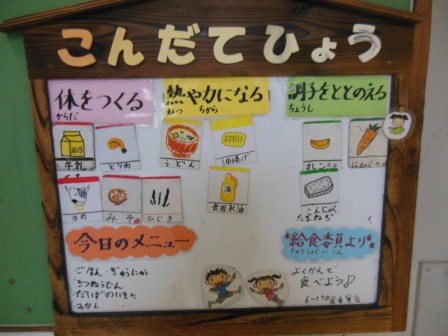 こんだてひょう
体をつくる
からだ
熱や力になる
ねつ ちから
調子をととのえる
ちょうし
牛乳
とり肉
うどん
油揚げ
にんじん
牛肉
みそ
ひじき
食用米油
こんにゃく
たまねぎ
今日のメニュー
給食委員より
きゅうしょくいいん
ごはん・ぎゅうにゅう
きつねうどん
だいずのいそに
みかん
よくかんで
食べよう♪